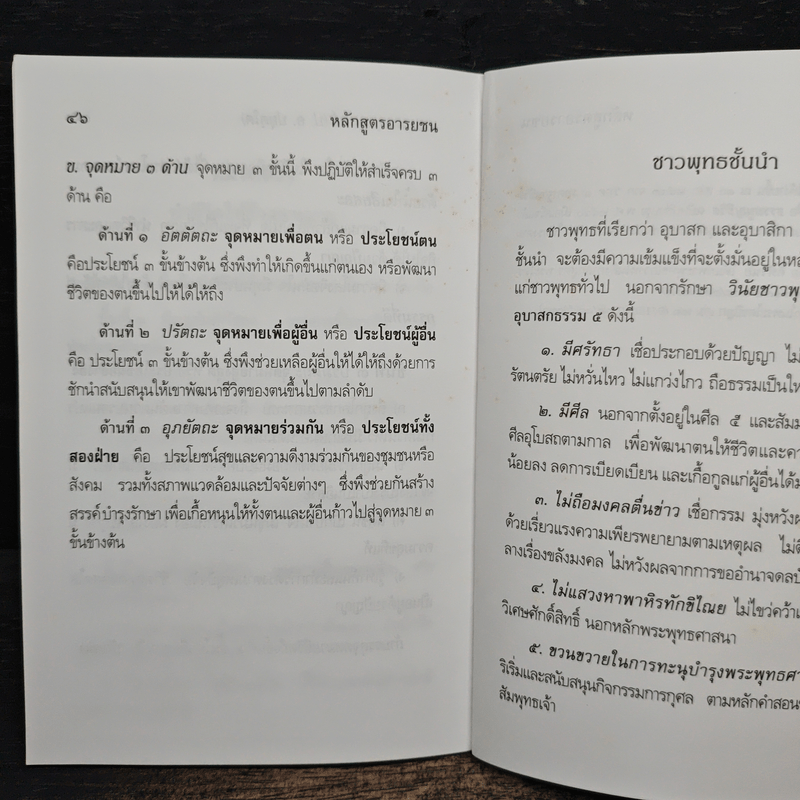 ๔๖
หลักสูตรอารยชน
ข. จุดหมาย ๓ ด้าน จุดหมาย ๓ ขั้นนี้ พึงปฏิบัติให้สำเร็จครบ ๓
ด้าน คือ
ด้านที่ ๑ อัตตัตถะ จุดหมายเพื่อตน หรือ ประโยชน์ตน
คือประโยชน์ ๓ ขั้นข้างต้น ซึ่งพึงทำให้เกิดขึ้นแก่ตนเอง หรือพัฒนา
ชีวิตของตนขึ้นไปให้ได้ให้ถึง
ด้านที่ ๒ ปรัตถะ จุดหมายเพื่อผู้อื่น หรือ ประโยชน์ผู้อื่น
คือ ประโยชน์ ๓ ขั้นข้างต้น ซึ่งพึงช่วยเหลือผู้อื่นให้ได้ให้ถึงด้วยการ
ชักนำสนับสนุนให้เขาพัฒนาชีวิตของตนขึ้นไปตามลำดับ
ด้านที่ ๓ อุภยัตถะ จุดหมายร่วมกัน หรือ ประโยชน์ทั้ง
สองฝ่าย คือ ประโยชน์สุขและความดีงามร่วมกันของชุมชนหรือ
สังคม รวมทั้งสภาพแวดล้อมและปัจจัยต่างๆ ซึ่งพึงช่วยกันสร้าง
สรรค์ บำรุงรักษา เพื่อเกื้อหนุนให้ทั้งตนและผู้อื่นก้าวไปสู่จุดหมาย ๓
ขั้นข้างต้น
ชาวพุทธชั้นนำ
ชาวพุทธที่เรียกว่า อุบาสก และอุบาสิกา
ชั้นนำ จะต้องมีความเข้มแข็งที่จะตั้งมั่นอยู่ในหล
แก่ชาวพุทธทั่วไป นอกจากรักษา วินัยชาวพุ
อุบาสกธรรม ๕ ดังนี้
๑. มีศรัทธา เชื่อประกอบด้วยปัญญา ไม่
รัตนตรัย ไม่หวั่นไหว ไม่แกว่งไกว ถือธรรมเป็นให
๒. มีศีล นอกจากตั้งอยู่ในศีล ๕ และสัมม
ศีลอุโบสถตามกาล เพื่อพัฒนาตนให้ชีวิตและคว
น้อยลง ลดการเบียดเบียน และเกื้อกูลแก่ผู้อื่นได้ม
๓. ไม่ถือมงคลตื่นข่าว เชื่อกรรม มุ่งหวังผ
ด้วยเรี่ยวแรงความเพียรพยายามตามเหตุผล ไม่ตื
ลางเรื่องขลังมงคล ไม่หวังผลจากการขออำนาจดลบั
๔. ไม่แสวงหาพาหิรทักขิไณย ไม่ไขว่คว้าเ
วิเศษศักดิ์สิทธิ์ นอกหลักพระพุทธศาสนา
๕. ขวนขวายในการทะนุบำรุงพระพุทธศา
ริเริ่มและสนับสนุนกิจกรรมการกุศล ตามหลักคำสอน
สัมพุทธเจ้า